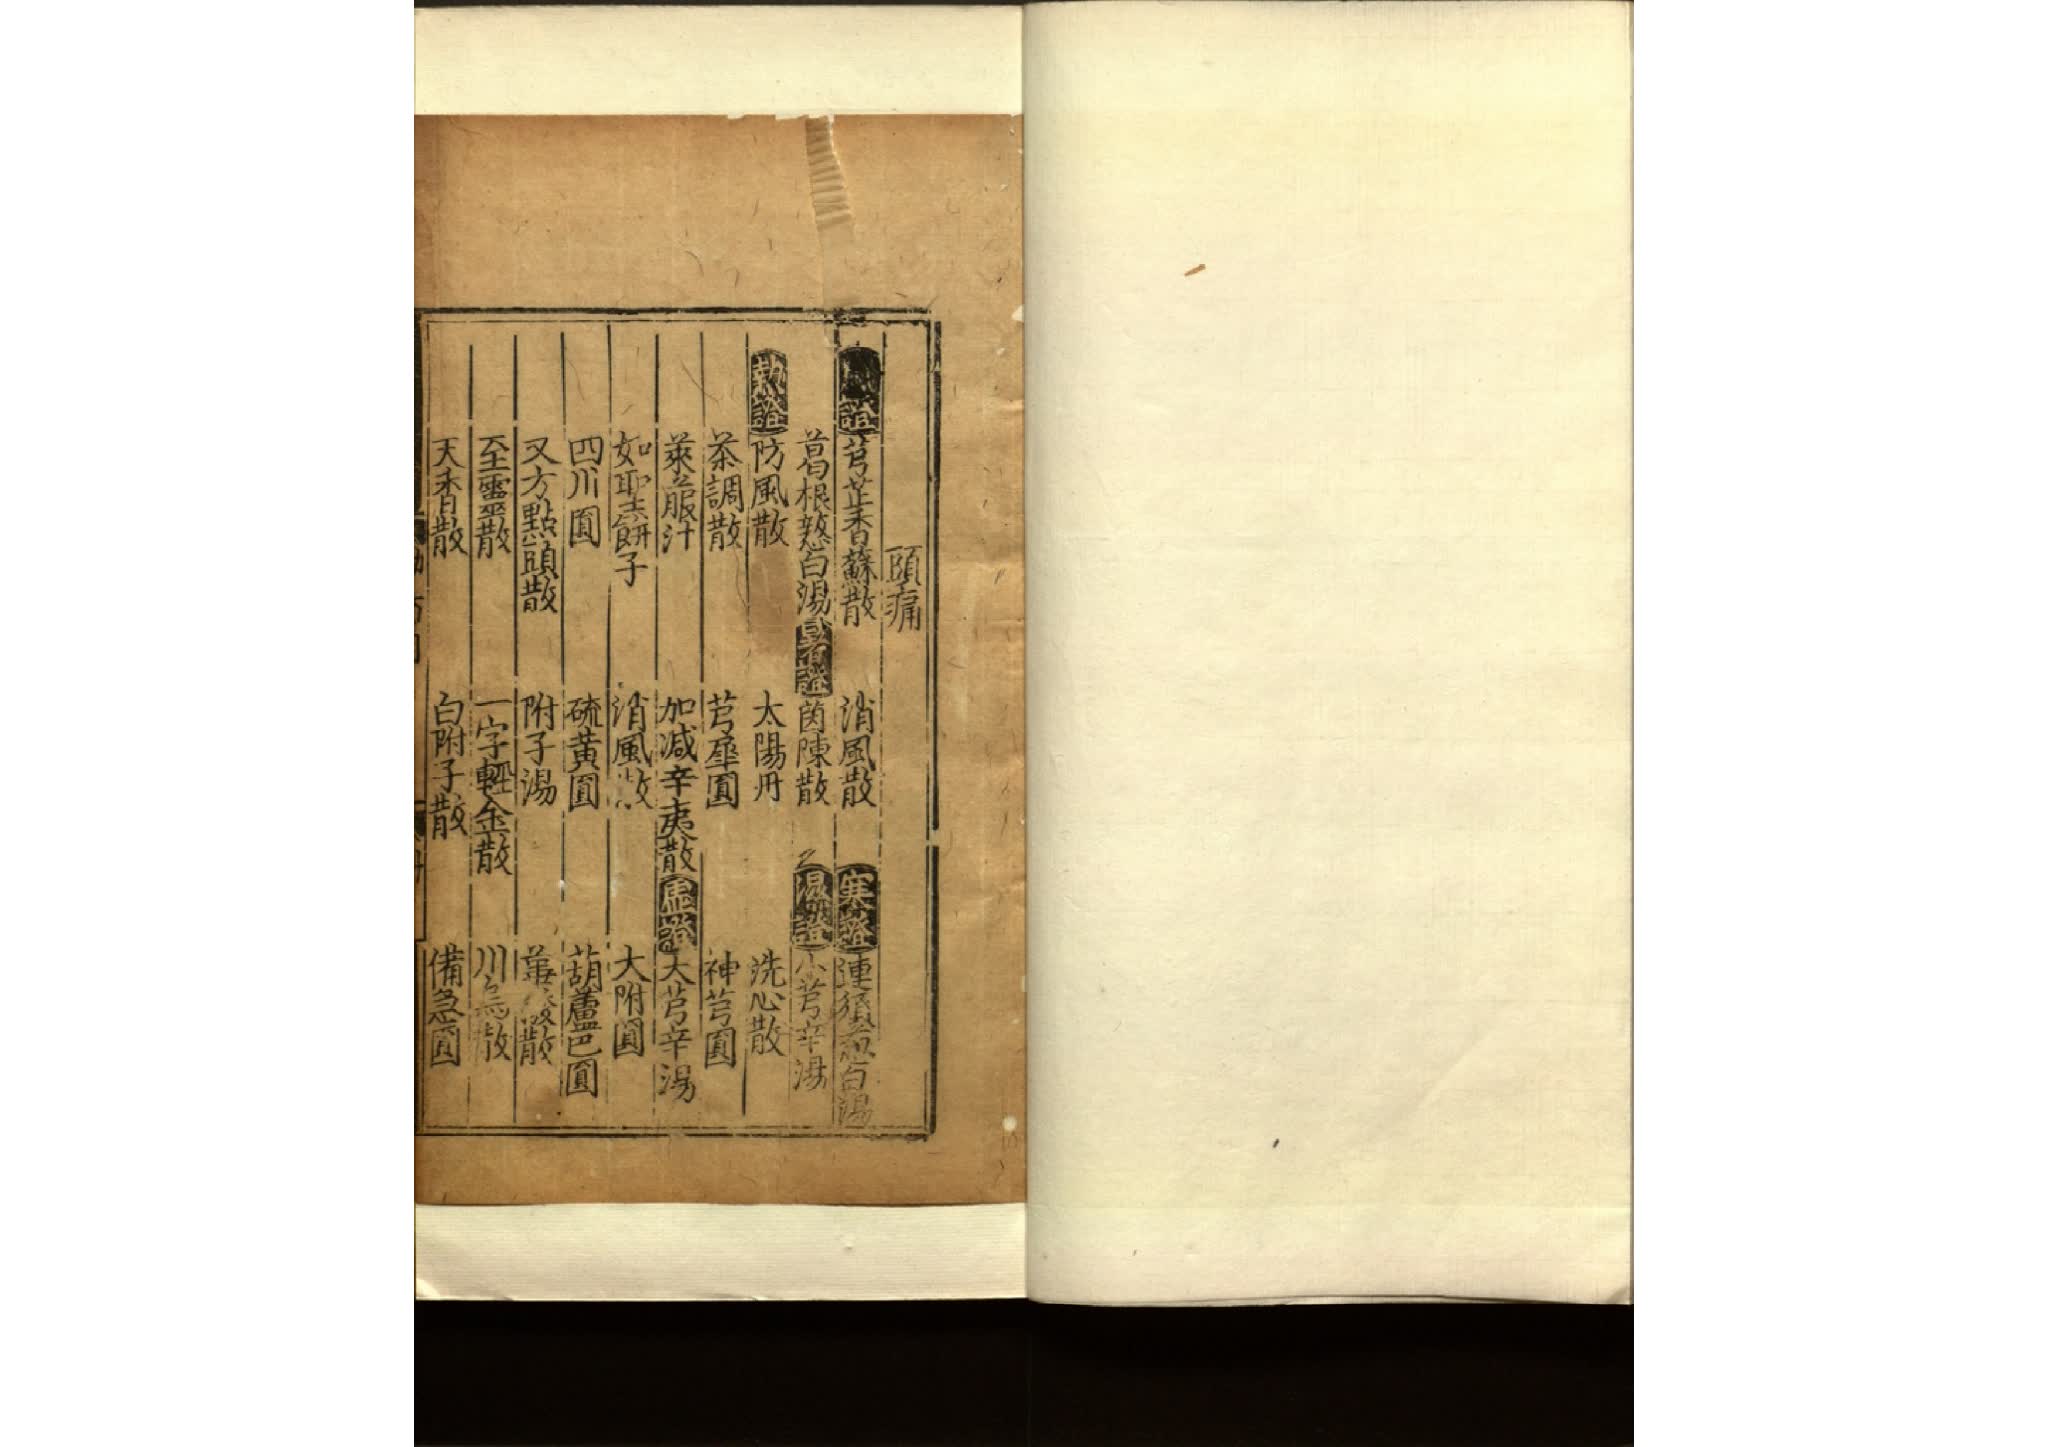 頭痛
風證 芎芷香蘇散 消風散 寒證 連須葱白湯
葛根葱白湯 暑證 茵陳散 濕證 小芎辛湯
熱證 防風散 太陽丹 洗心散
茶調散 芎犀圓 神芎圓
萊菔汁 加減辛夷散 虛證 大芎辛湯
如聖餅子 消風散 大附圓
四川圓 硫黃圓 葫蘆巴圓
又方點頭散 附子湯 蓽撥散
至靈散 一字輕金散 川烏散
天香散 白附子散 備急圓